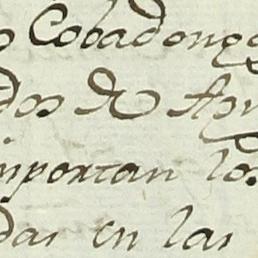 o Cobadonga
dos de Apr
importan los
das en las